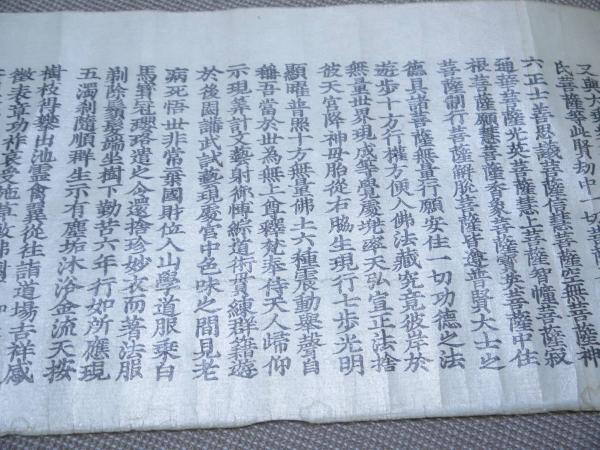 又與大乘
氏菩薩等此賢劫中一切菩薩
六正士善思議菩薩信慧菩薩空無菩薩神
通華菩薩光英菩薩慧上菩薩智幢菩薩寂
根菩薩願慧菩薩香象菩薩寶英菩薩中住
菩薩制行菩薩解脫菩薩皆遵普賢大士之
德具諸菩薩無量行願安住一切功德之法
遊步十方行權方便入佛法藏究竟彼岸於
無量世界現成等覺處兜率天弘宣正法捨
彼天宮降神母胎從右脇生現行七步光明
顯曜普照十方無量佛土六種震動舉聲自
稱吾當於世為無上尊釋梵奉侍天人歸仰
示現筭計文藝射御博綜道術貫練群籍遊
於後園講武試藝現處宮中色味之間見老
病死悟世非常棄國財位入山學道服乘白
馬寶冠瓔珞遣之令還捨珍妙衣而著法服
剃除鬚髮端坐樹下勤苦六年行如所應現
五濁刹隨順群生示有塵垢沐浴金流天按
樹枝得攀出池靈禽翼從往詣道場吉祥感
徵表章功祚哀受施草敷佛